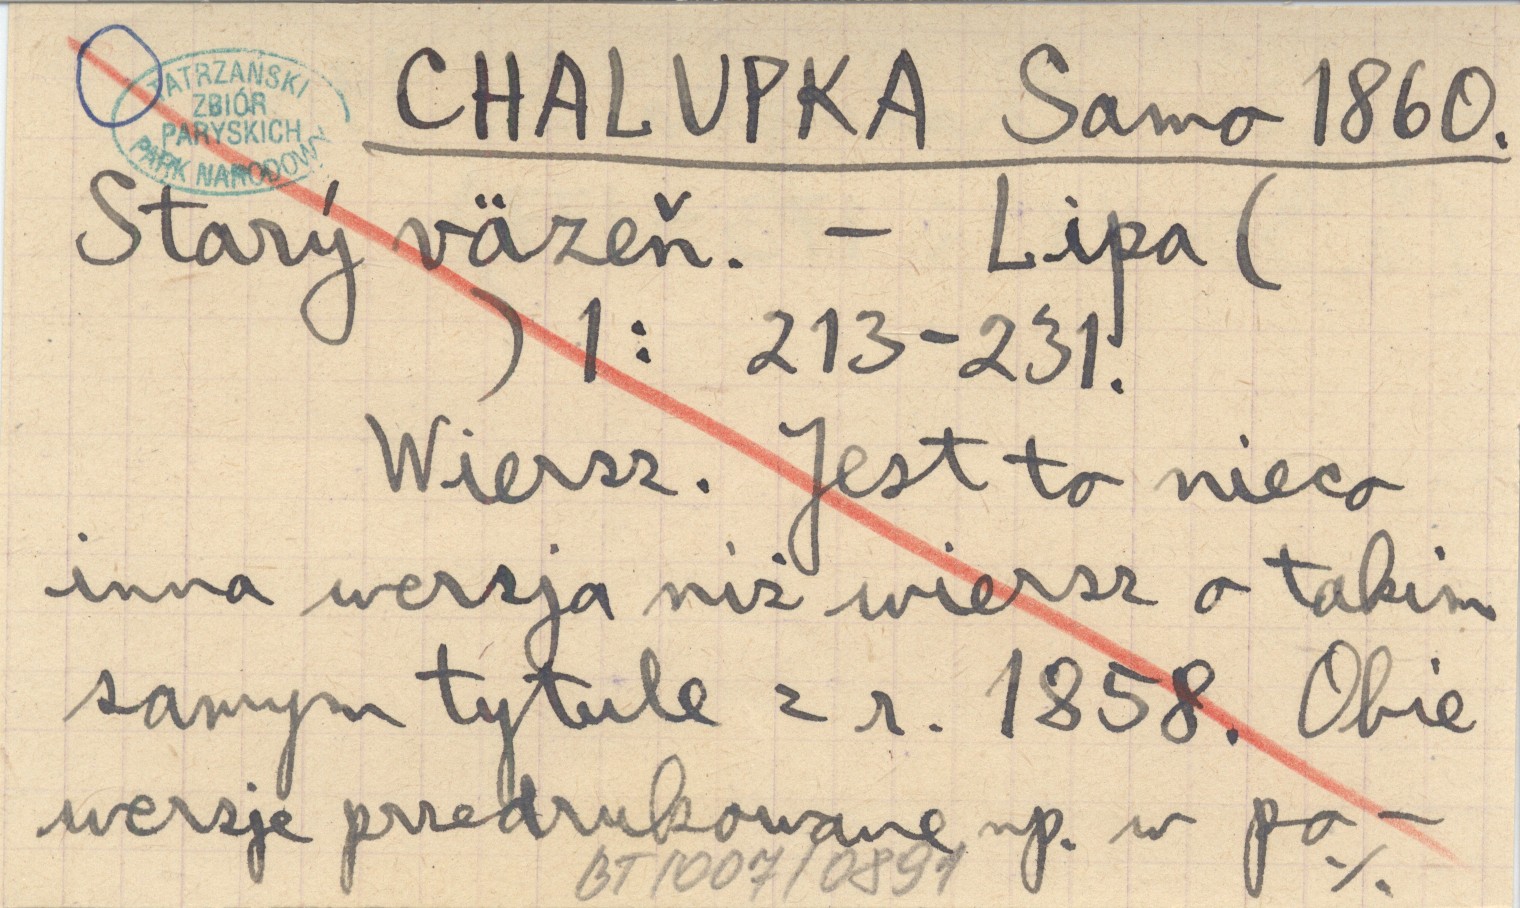 TATRZAŃSKI
ZBIÓR
PARYSKICH
PARK NARODOWY
CHALUPKA Samo 1860.
Starý väzeň. – Lipa (
) 1: 213-231.
Wiersz. Jest to nieco
inna wersja niż wiersz o takim
samym tytule z r. 1858. Obie
wersje przedrukowane np. w po-
./.
BT1007/0891